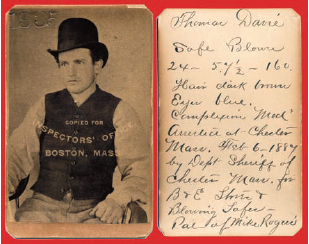 COPIED FOR
INSPECTORS' OF
BOSTON, MASS
Thomas Davis
Safe Blower
24 - 5.7½ - 160.
Hair dark brown
Eyes blue.
Complexion Med'
Arrested at Chester
Mass. Feb 6-1887
by Dept Sheriff of
Chester Mass. for
B & E Store &
Blowing Safes -
Pal of Mike Rogers